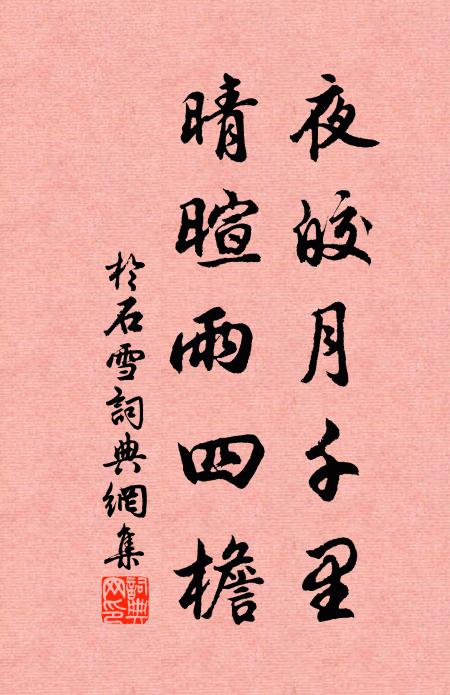 夜皎月千里
晴暄雨四檐
於石雪詞典網集
詞典网印